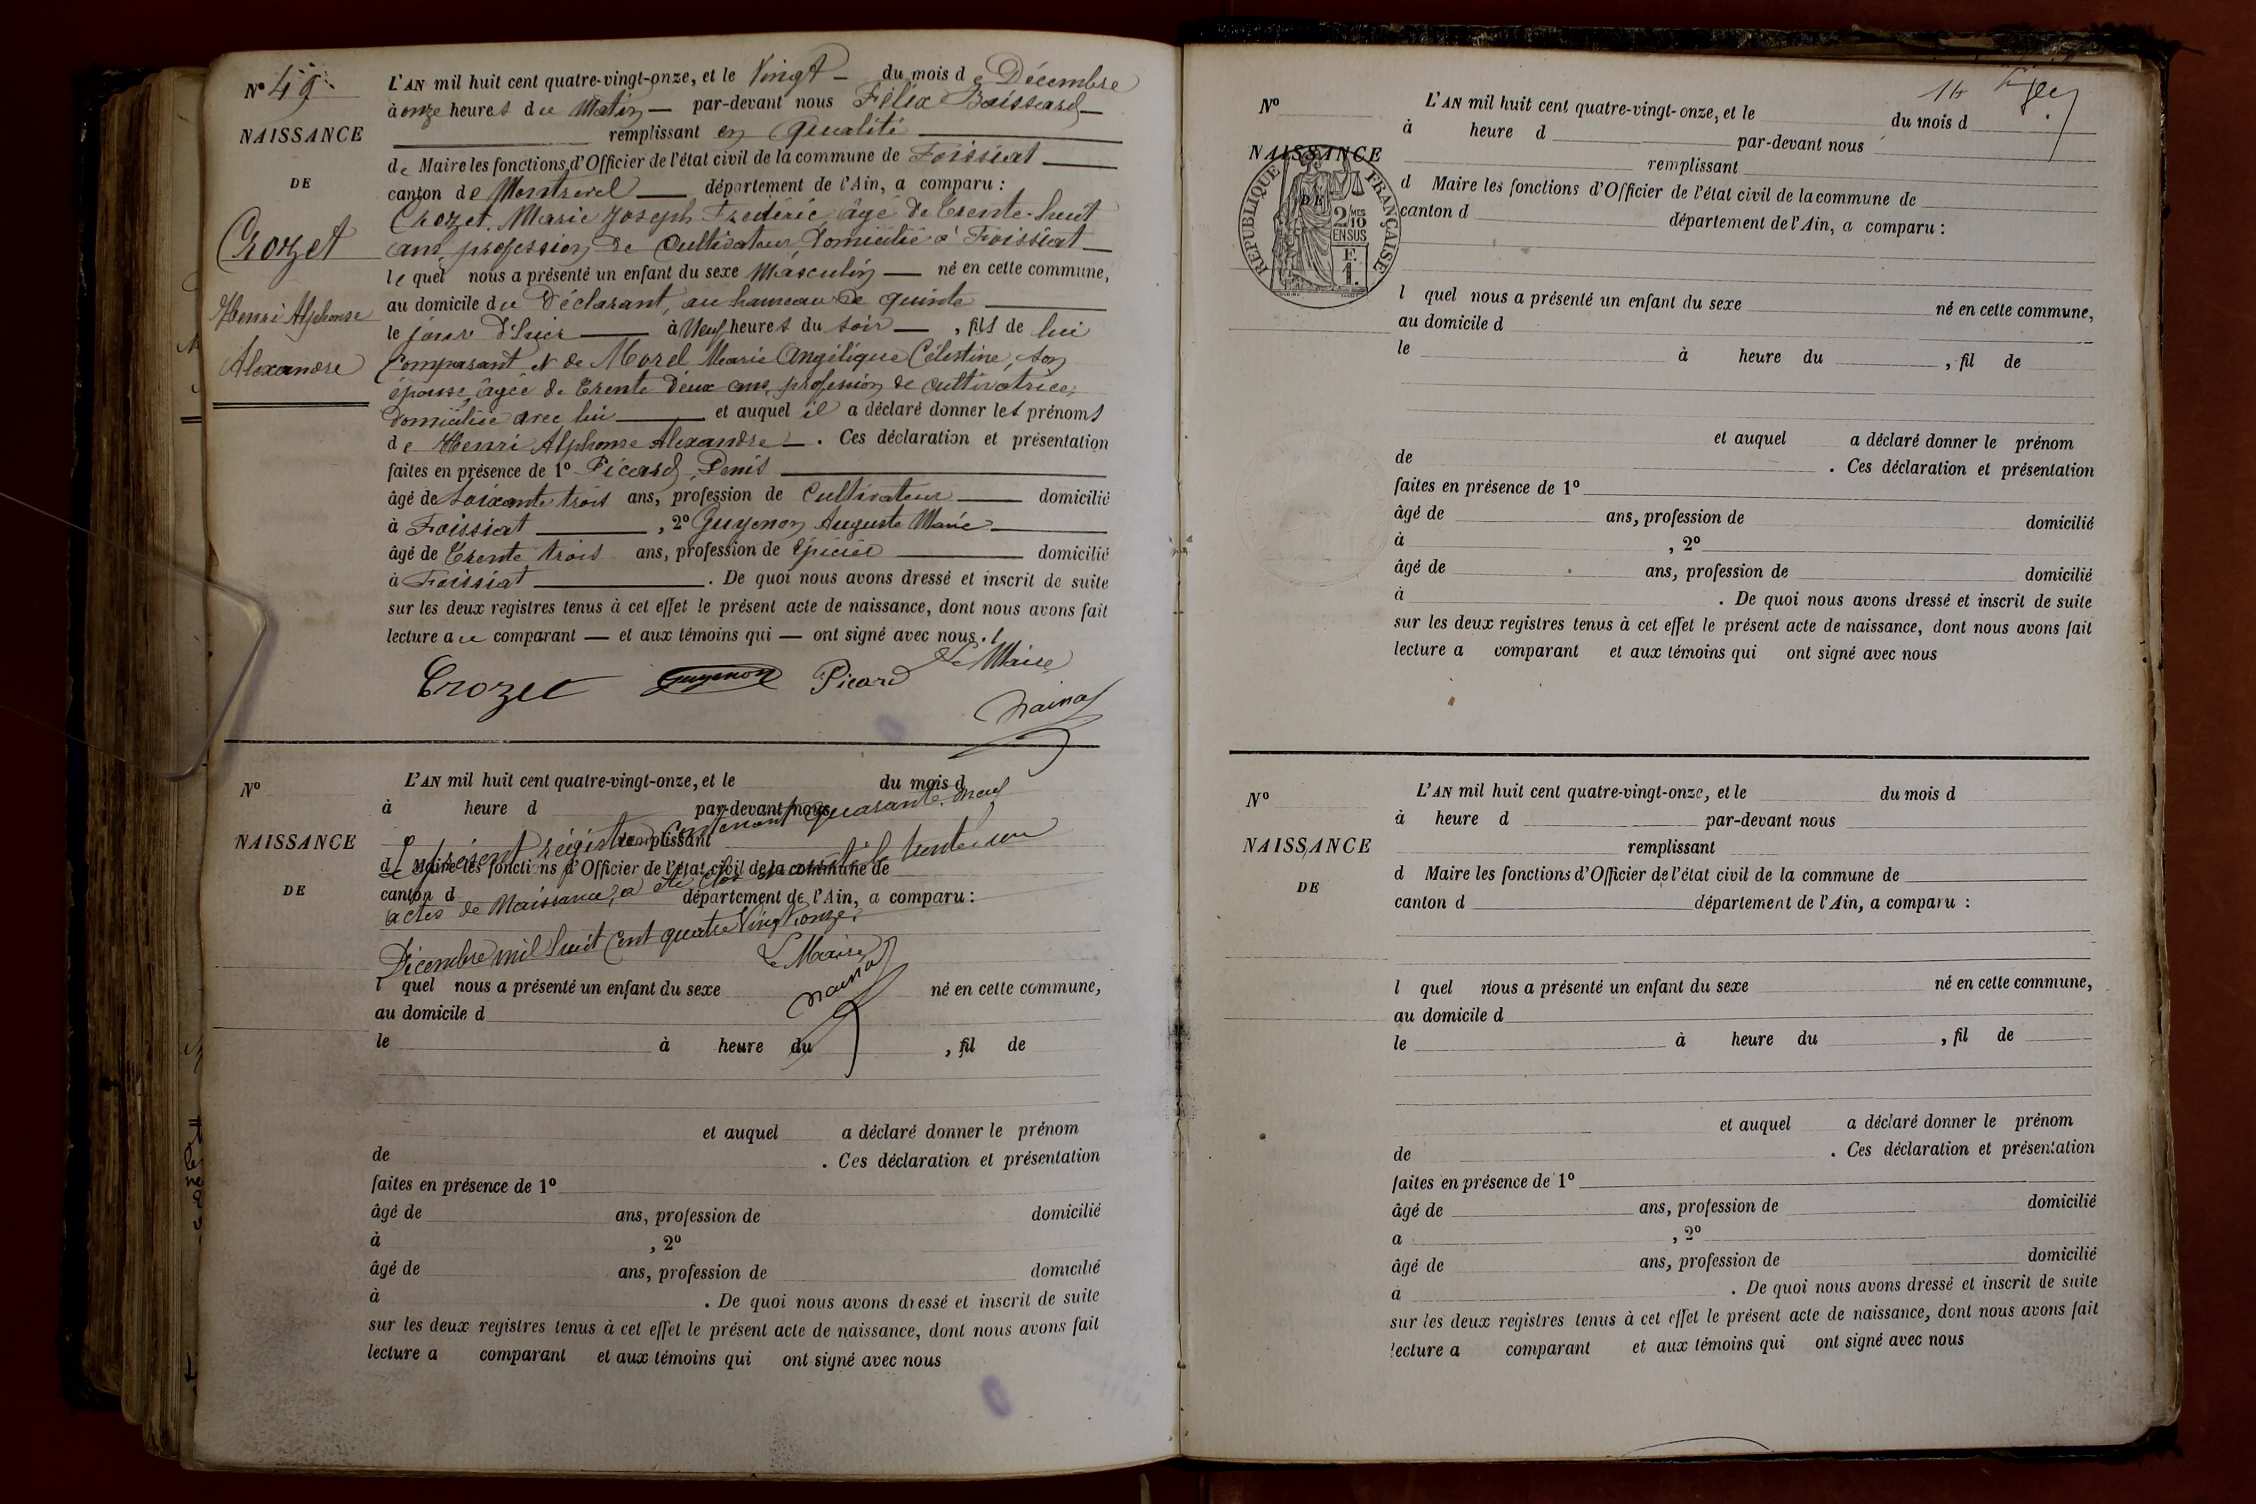 N° 49
NAISSANCE
DE
Crozet
Henri Alphonse
Alexandre
L'AN mil huit cent quatre-vingt-onze, et le Vingt du mois de Décembre
à onze heures du Matin par-devant nous Félix
remplissant en qualité
de Maire les fonctions d'Officier de l'état civil de la commune de Foissiat
canton de Montrevel département de l'Ain, a comparu :
Crozet Marie Joseph Frédéric âgé de trente-huit
ans, profession de Cultivateur domicilié à Foissiat
lequel nous a présenté un enfant du sexe Masculin né en cette commune,
au domicile du Déclarant, au hameau de
le jour d'hier à Neuf heures du soir , fils de lui
Comparant et de Morel Marie Angélique Célestine, son
épouse, âgée de trente deux ans, profession de cultivatrice,
domiciliée avec lui et auquel il a déclaré donner les prénoms
de Henri Alphonse Alexandre . Ces déclaration et présentation
faites en présence de 1° Picard Denis
âgé de soixante trois ans, profession de Cultivateur domicilié
à Foissiat , 2° Guyenon Auguste Marie
âgé de trente trois ans, profession de épicier domicilié
à Foissiat . De quoi nous avons dressé et inscrit de suite
sur les deux registres tenus à cet effet le présent acte de naissance, dont nous avons fait
lecture au comparant et aux témoins qui ont signé avec nous.
Le Maire
Crozet Guyenon Picard
N°
NAISSANCE
DE
L'AN mil huit cent quatre-vingt-onze, et le du mois d
à heure d par-devant nous
remplissant
d Maire les fonctions d'Officier de l'état civil de la commune de
canton d département de l'Ain, a comparu :
Le présent registre contenant quarante neuf
actes de Naissance, a été clos et arrêté le trente un
Décembre mil huit cent quatre Vingt onze.
Le Maire
l quel nous a présenté un enfant du sexe né en cette commune,
au domicile d
le à heure du , fil de
et auquel a déclaré donner le prénom
de . Ces déclaration et présentation
faites en présence de 1°
âgé de ans, profession de domicilié
à , 2°
âgé de ans, profession de domicilié
à . De quoi nous avons dressé et inscrit de suite
sur les deux registres tenus à cet effet le présent acte de naissance, dont nous avons fait
lecture a comparant et aux témoins qui ont signé avec nous
N°
NAISSANCE
DE
RÉPUBLIQUE FRANÇAISE
2/10 MES
EN SUS
F.
1.
L'AN mil huit cent quatre-vingt-onze, et le du mois d
à heure d par-devant nous
remplissant
d Maire les fonctions d'Officier de l'état civil de la commune de
canton d département de l'Ain, a comparu :
l quel nous a présenté un enfant du sexe né en cette commune,
au domicile d
le à heure du , fil de
et auquel a déclaré donner le prénom
de . Ces déclaration et présentation
faites en présence de 1°
âgé de ans, profession de domicilié
à , 2°
âgé de ans, profession de domicilié
à . De quoi nous avons dressé et inscrit de suite
sur les deux registres tenus à cet effet le présent acte de naissance, dont nous avons fait
lecture a comparant et aux témoins qui ont signé avec nous
N°
NAISSANCE
DE
L'AN mil huit cent quatre-vingt-onze, et le du mois d
à heure d par-devant nous
remplissant
d Maire les fonctions d'Officier de l'état civil de la commune de
canton d département de l'Ain, a comparu :
l quel nous a présenté un enfant du sexe né en cette commune,
au domicile d
le à heure du , fil de
et auquel a déclaré donner le prénom
de . Ces déclaration et présentation
faites en présence de 1°
âgé de ans, profession de domicilié
a , 2°
âgé de ans, profession de domicilié
à . De quoi nous avons dressé et inscrit de suite
sur les deux registres tenus à cet effet le présent acte de naissance, dont nous avons fait
lecture a comparant et aux témoins qui ont signé avec nous